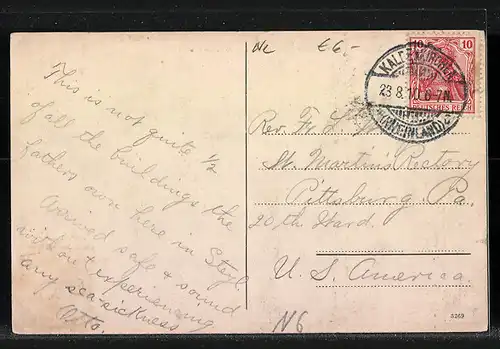 NL €6-
10 10
DEUTSCHES REICH
KALDENKIRCHEN
23.8.10.6-7N.
(RHEINLAND)
This is not quite 1/2
of all the buildings the
fathers own here in Steyl.
Arrived safe & sound
without experiencing
any sea-sickness
Otto.
Rev. Fr. L.
St. Martin's Rectory
Pittsburg. Pa.
20th Ward.
U. S. America
N6
5269